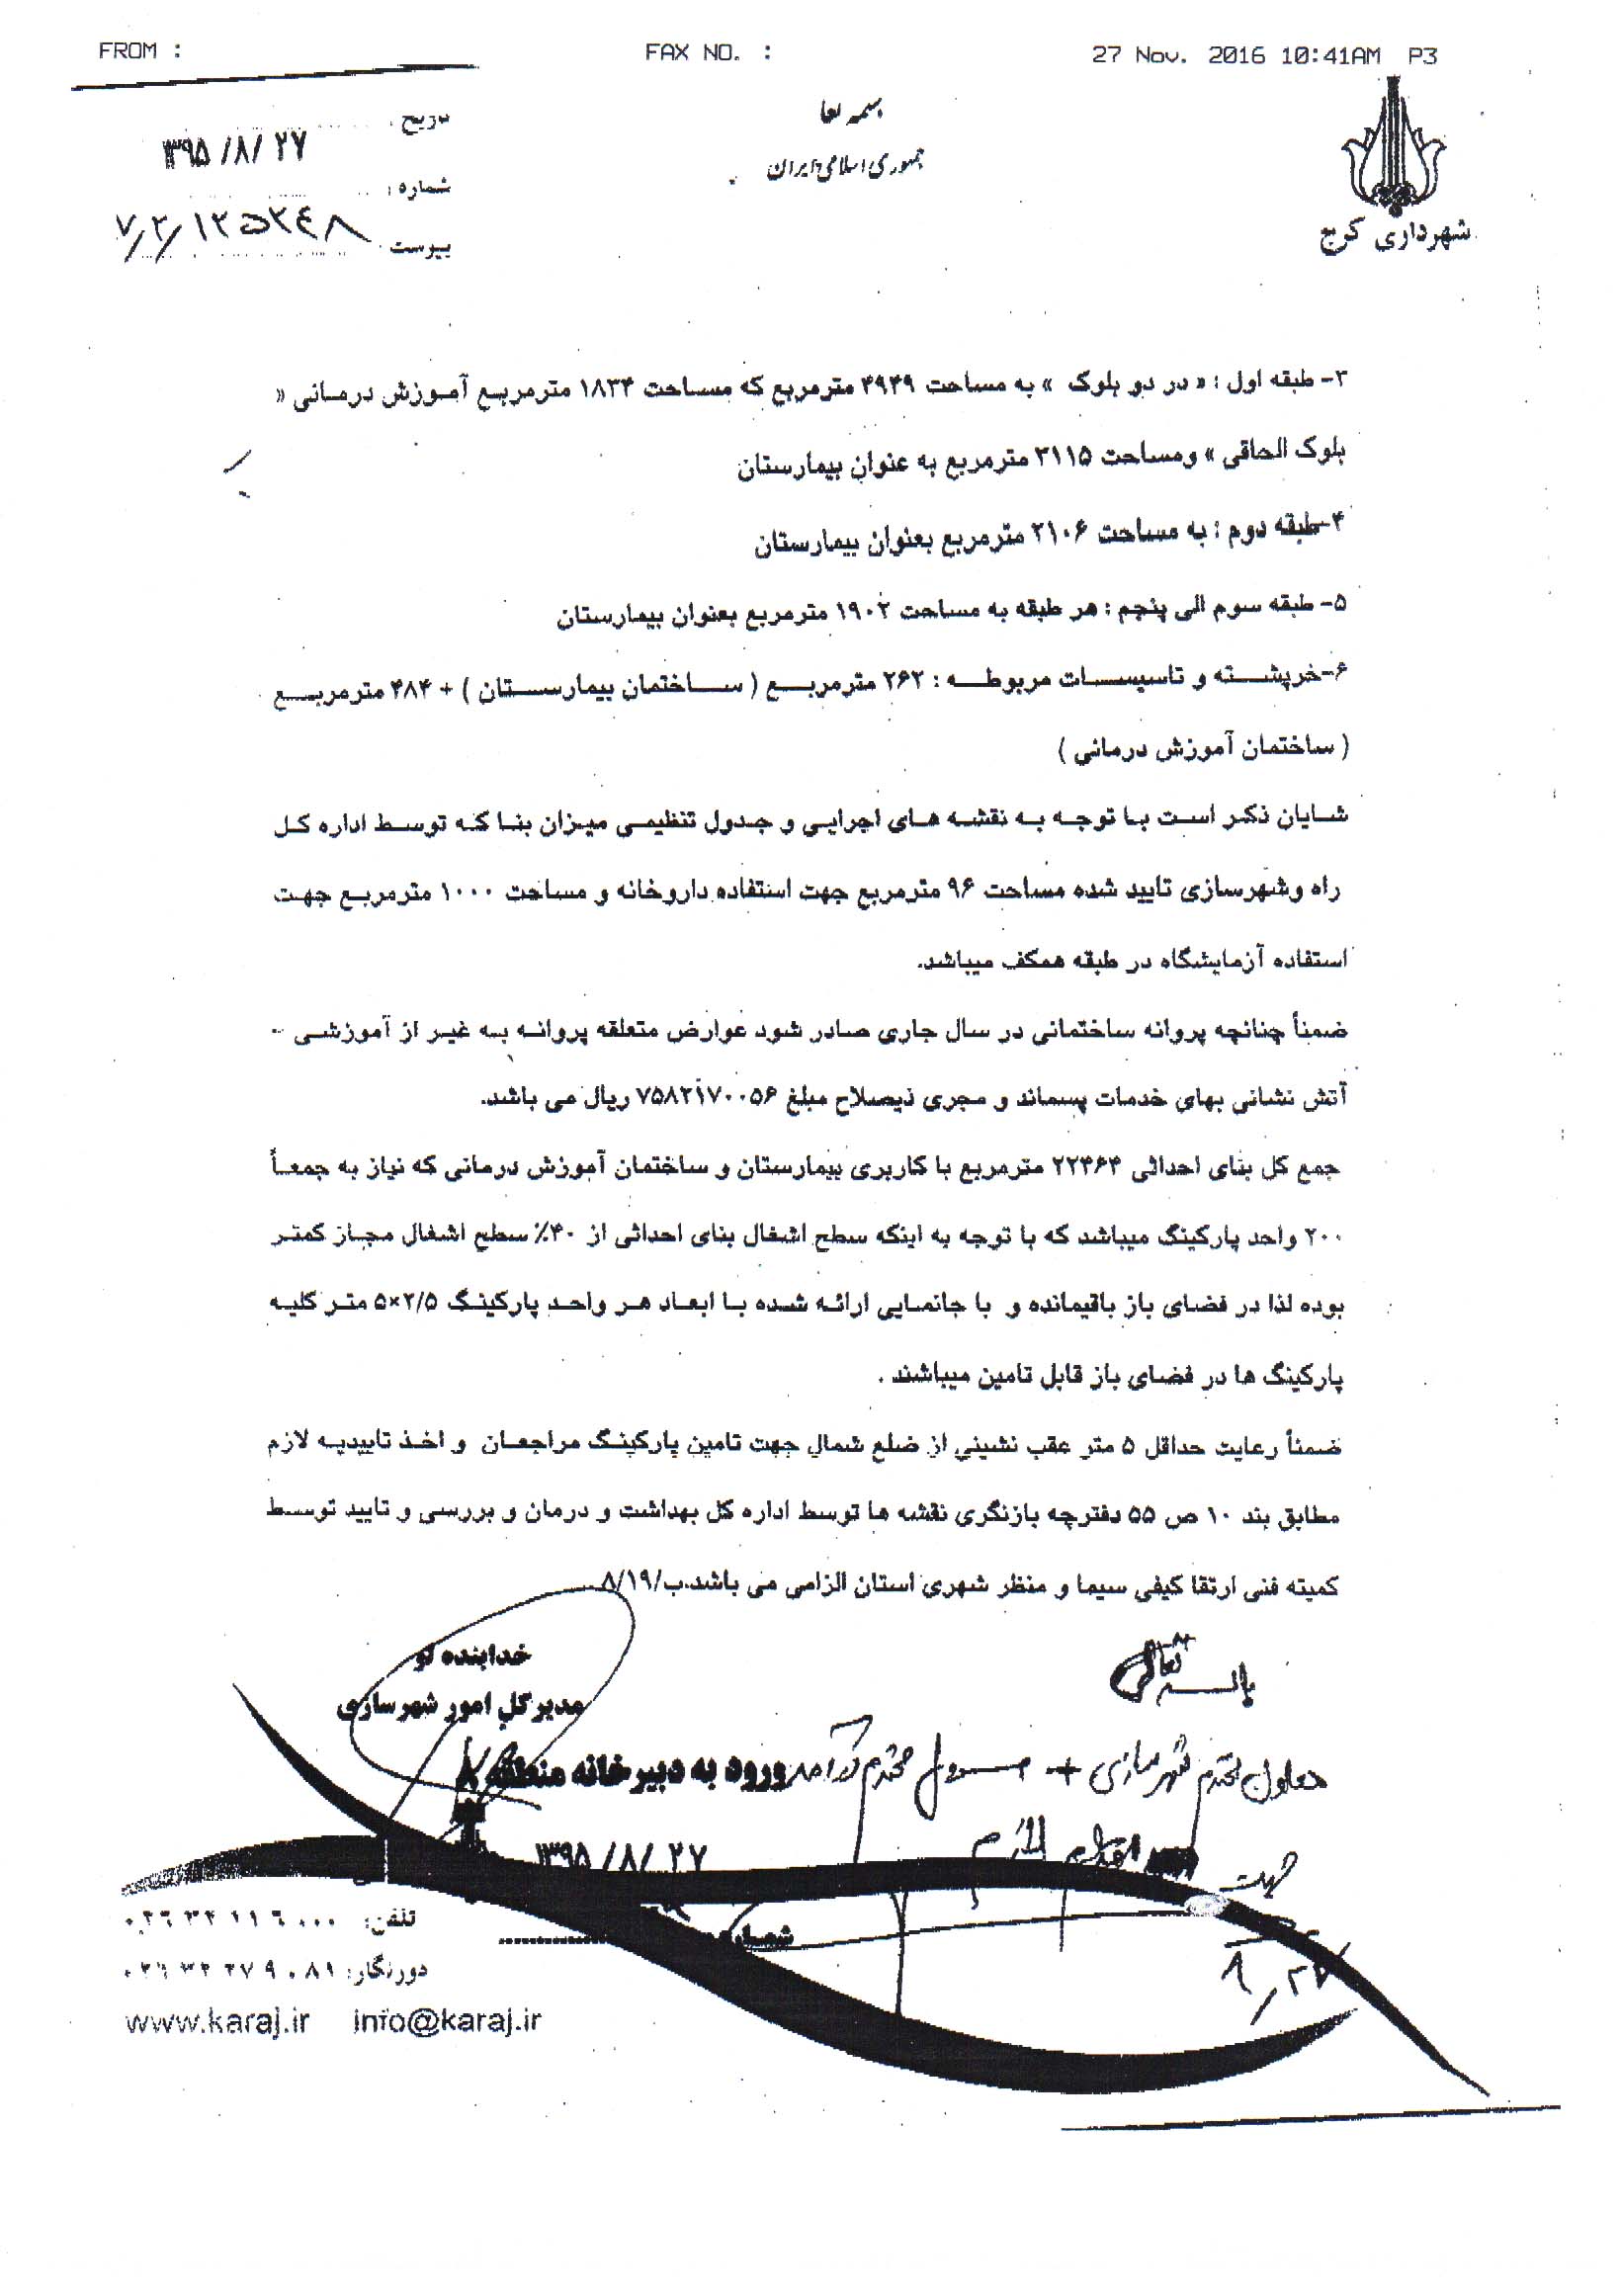 FROM :
FAX NO. :
27 Nov. 2016 10:41AM P3
بسمه تعا
جمهوری اسلامی ایران
شهرداری کرج
تاریخ :
۱۳۹۵/۸/۲۷
شماره :
۷/۲/۱۲۵۲۴۸
پیوست
۳- طبقه اول : « در دو بلوک » به مساحت ۴۹۴۹ مترمربع که مساحت ۱۸۳۴ مترمربع آموزش درمانی «
بلوک الحاقی » ومساحت ۳۱۱۵ مترمربع به عنوان بیمارستان
۴-طبقه دوم : به مساحت ۲۱۰۶ مترمربع بعنوان بیمارستان
۵- طبقه سوم الی پنجم : هر طبقه به مساحت ۱۹۰۲ مترمربع بعنوان بیمارستان
۶-خرپشته و تاسیسات مربوطه : ۲۶۲ مترمربع ( ساختمان بیمارستان ) + ۴۸۴ مترمربع
( ساختمان آموزش درمانی )
شایان ذکر است با توجه به نقشه های اجرایی و جدول تنظیمی میزان بنا که توسط اداره کل
راه وشهرسازی تایید شده مساحت ۹۶ مترمربع جهت استفاده داروخانه و مساحت ۱۰۰۰ مترمربع جهت
استفاده آزمایشگاه در طبقه همکف میباشد.
ضمناً چنانچه پروانه ساختمانی در سال جاری صادر شود عوارض متعلقه پروانه به غیر از آموزشی -
آتش نشانی بهای خدمات پسماند و مجری ذیصلاح مبلغ ۷۵۸۲۱۷۰۰۵۶ ریال می باشد.
جمع کل بنای احداثی ۲۲۴۶۴ مترمربع با کاربری بیمارستان و ساختمان آموزش درمانی که نیاز به جمعاً
۲۰۰ واحد پارکینگ میباشد که با توجه به اینکه سطح اشغال بنای احداثی از ۴۰٪ سطح اشغال مجاز کمتر
بوده لذا در فضای باز باقیمانده و با جانمایی ارائه شده با ابعاد هر واحد پارکینگ ۵×۲/۵ متر کلیه
پارکینگ ها در فضای باز قابل تامین میباشند .
ضمناً رعایت حداقل ۵ متر عقب نشینی از ضلع شمال جهت تامین پارکینگ مراجعان و اخذ تاییدیه لازم
مطابق بند ۱۰ ص ۵۵ دفترچه بازنگری نقشه ها توسط اداره کل بهداشت و درمان و بررسی و تایید توسط
کمیته فنی ارتقا کیفی سیما و منظر شهری استان الزامی می باشد.ب/۸/۱۹
خدابنده لو
مدیرکل امور شهرسازی
باسمه تعالی
معاون محترم شهرسازی + مسئول محترم درآمد
جهت اقدام لازم
۸/۲۷
ورود به دبیرخانه منطقه ۸
۱۳۹۵/۸/۲۷
شماره
تلفن: ۰۲۶۳۴۲۱۶۰۰۰
دورنگار: ۰۲۶۳۲۲۷۹۰۸۱
www.karaj.ir info@karaj.ir